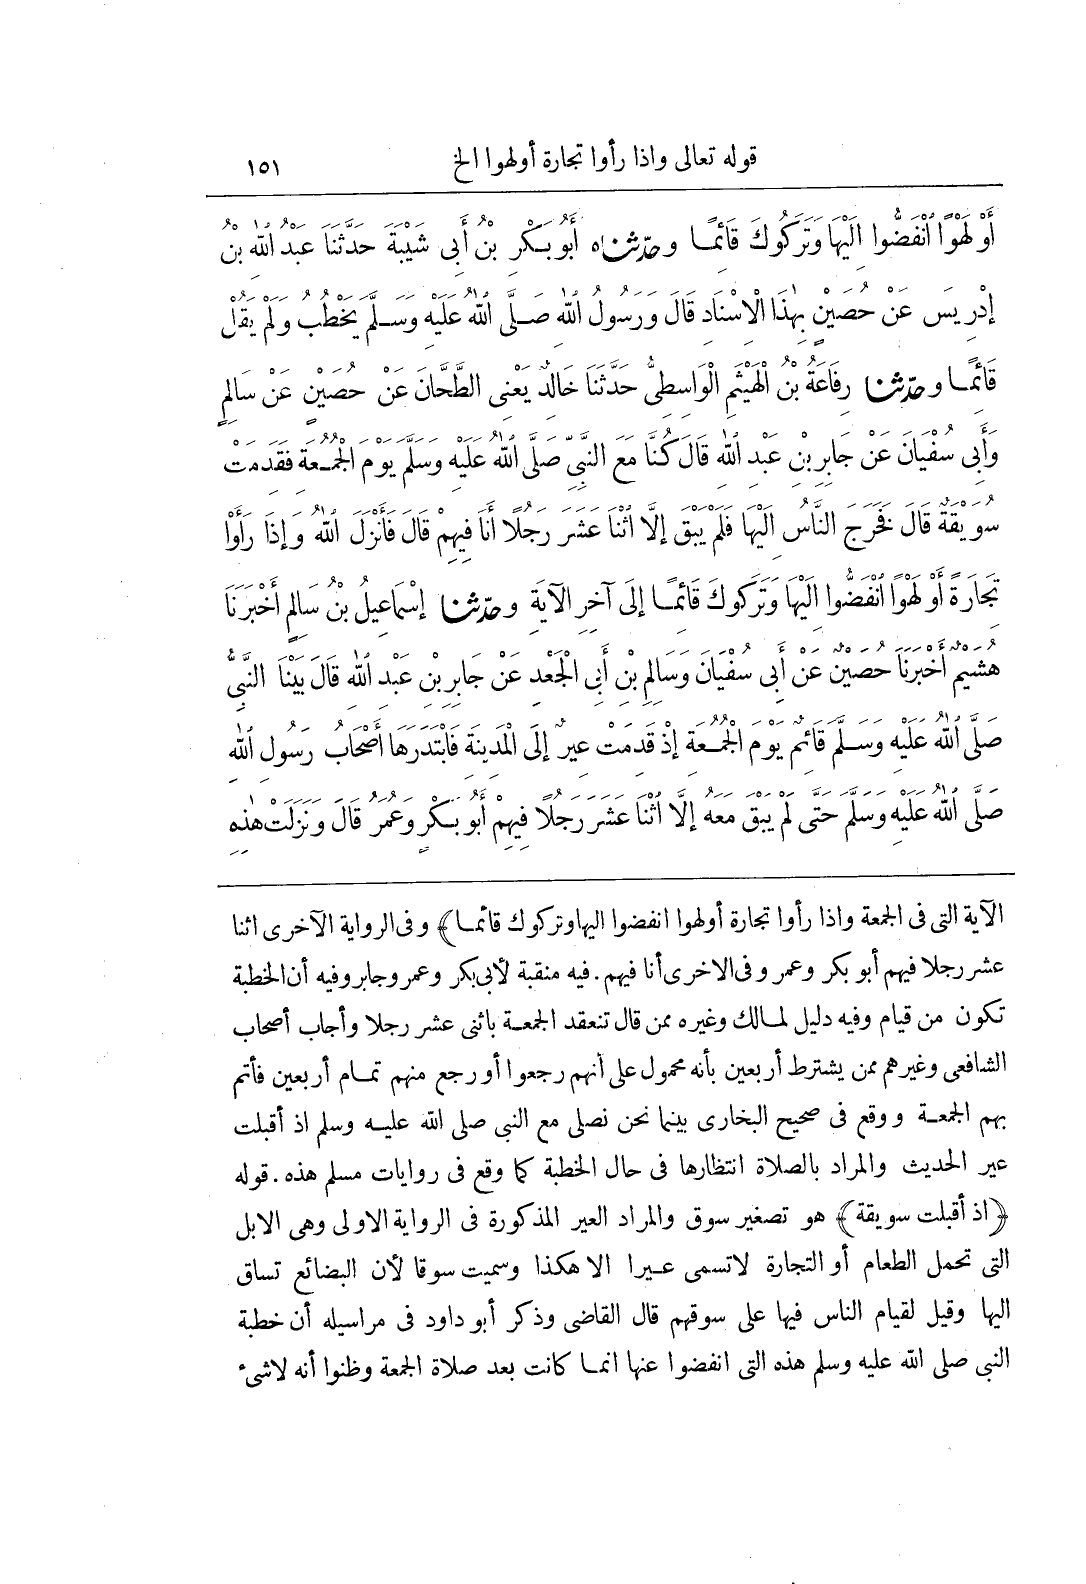 قوله تعالى واذا رأوا تجارة أولهوا الخ ١٥١
أَوْ لَهْوًا انْفَضُّوا إِلَيْهَا وَتَرَكُوكَ قَائِمًا وحَدَّثَنَاه أَبُو بَكْرِ بْنُ أَبِي شَيْبَةَ حَدَّثَنَا عَبْدُ اللهِ بْنُ
إِدْرِيسَ عَنْ حُصَيْنٍ بِهَذَا الْإِسْنَادِ قَالَ وَرَسُولُ اللهِ صَلَّى اللهُ عَلَيْهِ وَسَلَّمَ يَخْطُبُ وَلَمْ يَقُلْ
قَائِمًا وحَدَّثَنَا رِفَاعَةُ بْنُ الْهَيْثَمِ الْوَاسِطِيُّ حَدَّثَنَا خَالِدٌ يَعْنِي الطَّحَّانَ عَنْ حُصَيْنٍ عَنْ سَالِمٍ
وَأَبِي سُفْيَانَ عَنْ جَابِرِ بْنِ عَبْدِ اللهِ قَالَ كُنَّا مَعَ النَّبِيِّ صَلَّى اللهُ عَلَيْهِ وَسَلَّمَ يَوْمَ الْجُمُعَةِ فَقَدِمَتْ
سُوَيْقَةٌ قَالَ فَخَرَجَ النَّاسُ إِلَيْهَا فَلَمْ يَبْقَ إِلَّا اثْنَا عَشَرَ رَجُلًا أَنَا فِيهِمْ قَالَ فَأَنْزَلَ اللهُ وَإِذَا رَأَوْا
تِجَارَةً أَوْ لَهْوًا انْفَضُّوا إِلَيْهَا وَتَرَكُوكَ قَائِمًا إِلَى آخِرِ الْآيَةِ وحَدَّثَنَا إِسْمَاعِيلُ بْنُ سَالِمٍ أَخْبَرَنَا
هُشَيْمٌ أَخْبَرَنَا حُصَيْنٌ عَنْ أَبِي سُفْيَانَ وَسَالِمِ بْنِ أَبِي الْجَعْدِ عَنْ جَابِرِ بْنِ عَبْدِ اللهِ قَالَ بَيْنَا النَّبِيُّ
صَلَّى اللهُ عَلَيْهِ وَسَلَّمَ قَائِمٌ يَوْمَ الْجُمُعَةِ إِذْ قَدِمَتْ عِيرٌ إِلَى الْمَدِينَةِ فَابْتَدَرَهَا أَصْحَابُ رَسُولِ اللهِ
صَلَّى اللهُ عَلَيْهِ وَسَلَّمَ حَتَّى لَمْ يَبْقَ مَعَهُ إِلَّا اثْنَا عَشَرَ رَجُلًا فِيهِمْ أَبُو بَكْرٍ وَعُمَرُ قَالَ وَنَزَلَتْ هَذِهِ
الآية التى فى الجمعة واذا رأوا تجارة أولهوا انفضوا اليها وتركوك قائما﴾ وفى الرواية الآخرى اثنا
عشر رجلا فيهم أبو بكر وعمر وفى الاخرى أنا فيهم. فيه منقبة لأبى بكر وعمر وجابر وفيه أن الخطبة
تكون من قيام وفيه دليل لمالك وغيره ممن قال تنعقد الجمعة باثنى عشر رجلا وأجاب أصحاب
الشافعى وغيرهم ممن يشترط أربعين بأنه محمول على أنهم رجعوا أو رجع منهم تمام أربعين فأتم
بهم الجمعة ووقع فى صحيح البخارى بينما نحن نصلى مع النبى صلى الله عليه وسلم اذ أقبلت
عير الحديث والمراد بالصلاة انتظارها فى حال الخطبة كما وقع فى روايات مسلم هذه. قوله
﴿اذ أقبلت سويقة﴾ هو تصغير سوق والمراد العير المذكورة فى الرواية الاولى وهى الابل
التى تحمل الطعام أو التجارة لاتسمى عيرا الا هكذا وسميت سوقا لأن البضائع تساق
اليها وقيل لقيام الناس فيها على سوقهم قال القاضى وذكر أبو داود فى مراسيله أن خطبة
النبى صلى الله عليه وسلم هذه التى انفضوا عنها انما كانت بعد صلاة الجمعة وظنوا أنه لاشىء